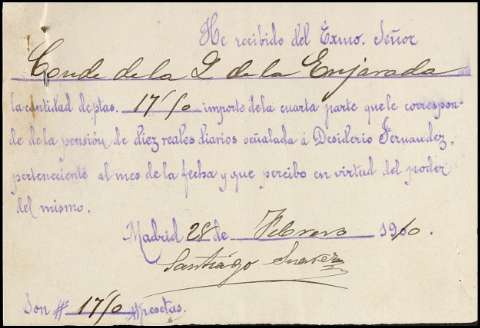 He recibido del Exmo. Señor
Conde de la T. de la Enjarada
la cantidad de ptas. 17'50 importe de la cuarta parte que le correspon-
de de la pensión de diez reales diarios señalada á Desiderio Fernandez,
perteneciente al mes de la fecha y que percibo en virtud del poder
del mismo.
Madrid 28 de Febrero 1910.
Santiago Suarez
Son # 17'50 # pesetas.